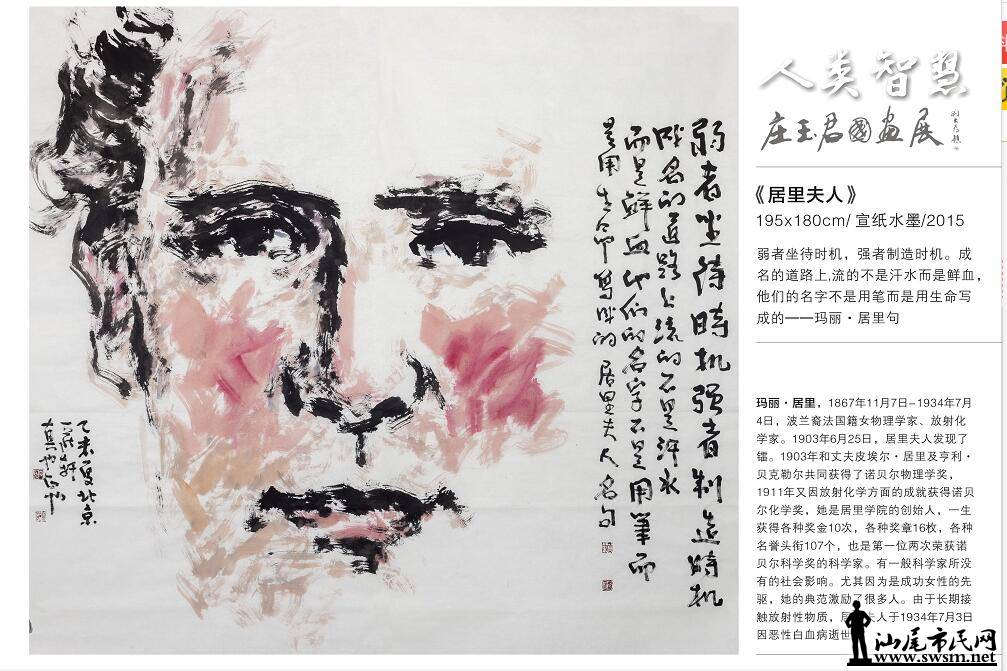 人类智慧
庄玉君國画展
《居里夫人》
195x180cm/ 宣纸水墨/2015
弱者坐待时机，强者制造时机。成
名的道路上,流的不是汗水而是鲜血，
他们的名字不是用笔而是用生命写
成的——玛丽·居里句
玛丽·居里，1867年11月7日-1934年7月
4日，波兰裔法国籍女物理学家、放射化
学家。1903年6月25日，居里夫人发现了
镭。1903年和丈夫皮埃尔·居里及亨利·
贝克勒尔共同获得了诺贝尔物理学奖，
1911年又因放射化学方面的成就获得诺贝
尔化学奖，她是居里学院的创始人，一生
获得各种奖金10次，各种奖章16枚，各种
名誉头衔107个，也是第一位两次荣获诺
贝尔科学奖的科学家。有一般科学家所没
有的社会影响。尤其因为是成功女性的先
驱，她的典范激励了很多人。由于长期接
触放射性物质，居 夫人于1934年7月3日
因恶性白血病逝世
弱者坐待時机强者制造時机
成名的道路上流的不是汗水
而是鲜血他们的名字不是用筆而
是用生命写成的居里夫人名句
乙未夏北京
汕尾市民网
www.swsm.net